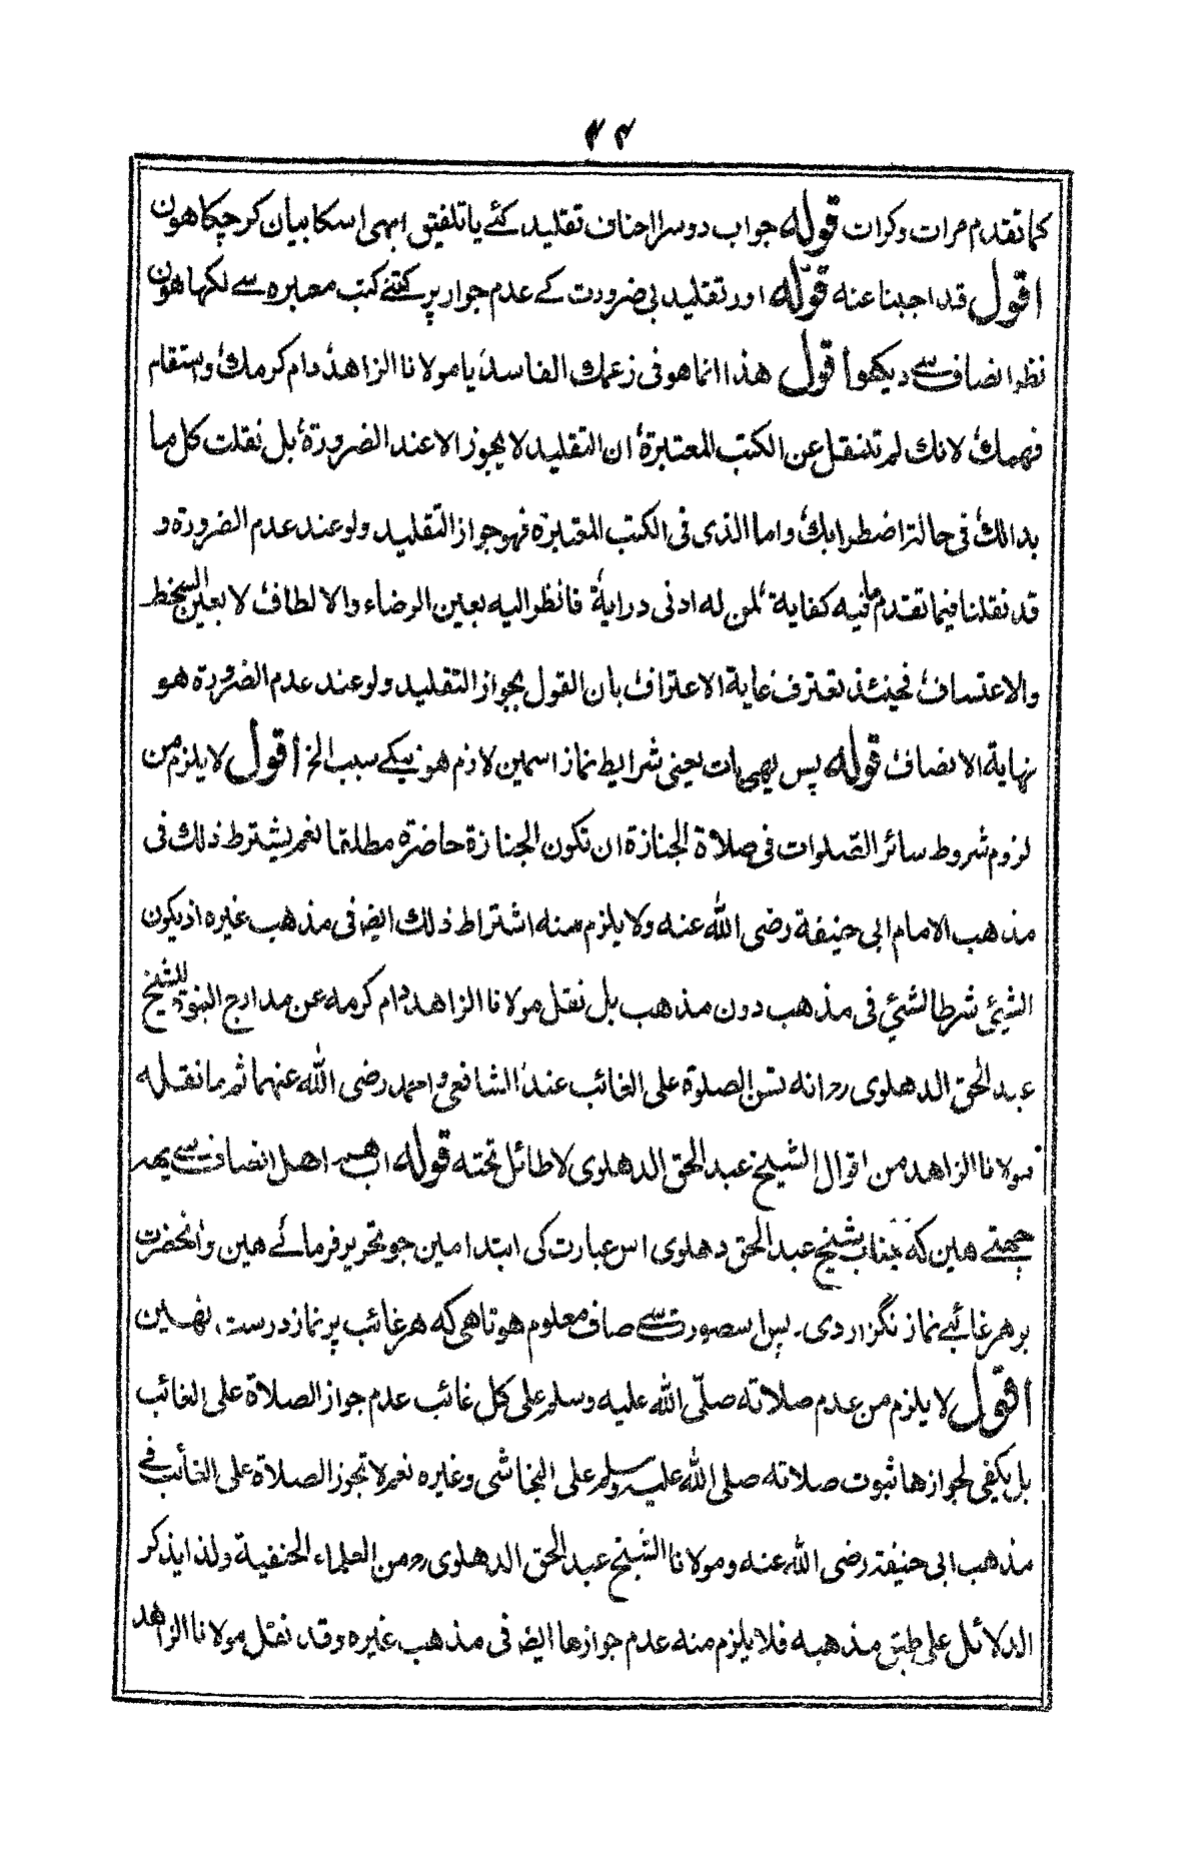 ۲۴
كما تقدم مرات وكرات قوله جواب دوسرا احناف تقليد كئے يا تلفيق ابهى اسكا بيان كرچكا هون
اقول قد اجبنا عنه قوله اور تقليد بى ضرورت كے عدم جواز پر كتنے كتب معتبره سے لكها هون
نظر انصاف سے ديكهو اقول هذا انما هو فى زعمك الفاسد يا مولانا الزاهد دام كرمك واستقام
فهمك لانك لم تنقل عن الكتب المعتبرة ان التقليد لا يجوز الا عند الضرورة بل نقلت كل ما
بدالك فى حالة اضطرابك واما الذى فى الكتب المعتبرة فهو جواز التقليد ولو عند عدم الضرورة و
قد نقلنا فيما تقدم ما فيه كفاية لمن له ادنى دراية فانظر اليه بعين الرضاء والالطاف لا بعين السخط
والاعتساف فحينئذ تعترف غاية الاعتراف بان القول بجواز التقليد ولو عند عدم الضرورة هو
نهاية الانصاف قوله پس يهى بات يعنى شرايط نماز اسمين لازم هونيكے سبب الخ اقول لا يلزم من
لزوم شروط سائر الصلوات فى صلاة الجنازة ان تكون الجنازة حاضرة مطلقا نعم يشترط ذلك فى
مذهب الامام ابى حنيفة رضى الله عنه ولا يلزم منه اشتراط ذلك ايضا فى مذهب غيره اذ يكون
الشيئ شرطا لشيئ فى مذهب دون مذهب بل نقل مولانا الزاهد دام كرمه عن مدارج النبوة للشيخ
عبد الحق الدهلوى رح انه تسن الصلوة على الغائب عند الشافعى واحمد رضى الله عنهما ثم ما نقله
مولانا الزاهد من اقوال الشيخ عبد الحق الدهلوى لا طائل تحته قوله اب هم اهل انصاف سے يهه
پوچهتے هين كه جناب شيخ عبد الحق دهلوى اس عبارت كى ابتدا مين جو تحرير فرمائے هين وانحضرت
بر هر غائبے نماز نگزاردى. پس اسصورت سے صاف معلوم هوتا هى كه هر غائب پر نماز درست نهين
اقول لا يلزم من عدم صلاته صلّى الله عليه وسلم على كل غائب عدم جواز الصلاة على الغائب
بل يكفى لجوازها ثبوت صلاته صلى الله عليه وسلم على النجاشى وغيره نعم لا تجوز الصلاة على الغائب فى
مذهب ابى حنيفة رضى الله عنه ومولانا الشيخ عبد الحق الدهلوى رح من العلماء الحنفية ولذا يذكر
الدلائل على طبق مذهبه فلا يلزم منه عدم جوازها ايضا فى مذهب غيره وقد نقل مولانا الزاهد